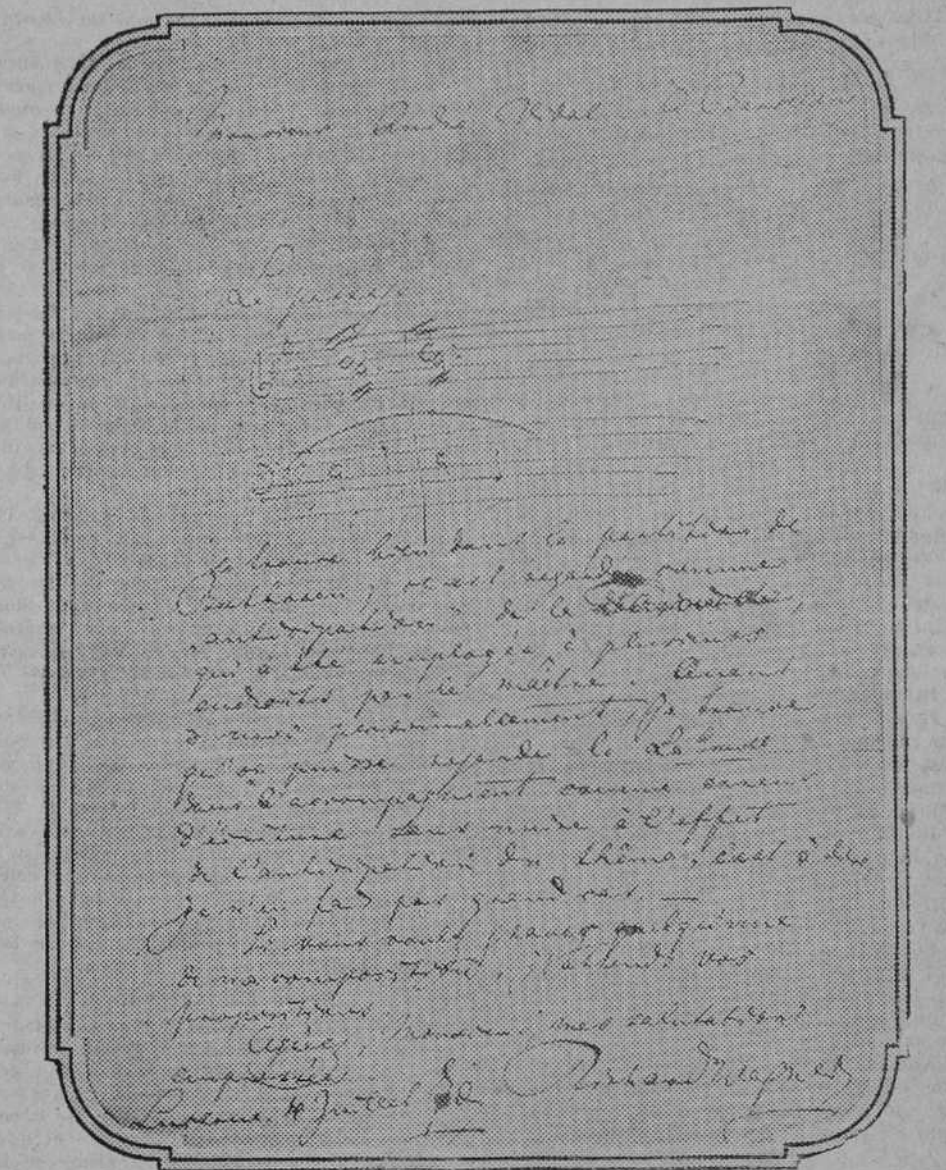 Monsieur André
Le passage
se trouve bien dans les partitions de
Beethoven, et est regardé comme
"anticipation" de la
qui a été employée à plusieurs
endroits par le maître. Quant
à moi personnellement, je trouve
qu'on puisse regarder le
dans l'accompagnement comme erreur
d'écriture sans nuire à l'effet
de l'anticipation du thème, c'est à dire
je n'en fais pas grand cas. —
Si vous voulez quelqu'une
de ma composition, j'attends vos
propositions.
Agréez, Monsieur, mes salutations
empressées
Richard Wagner
Lucerne, 4 Juillet